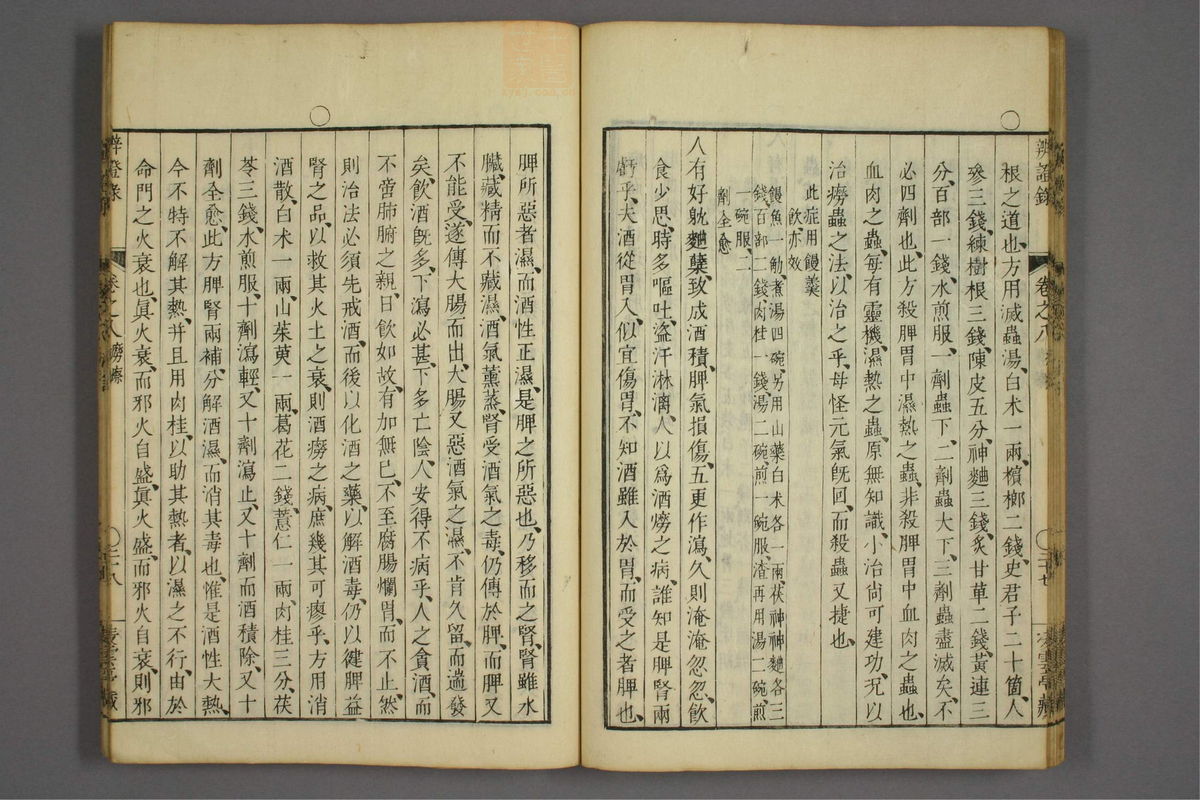 辨證錄 卷之八
根之道也、方用滅蟲湯、白术一兩、檳榔二錢、史君子二十箇、人
參三錢、練樹根三錢、陳皮五分、神麯三錢、炙甘草二錢、黃連三
分、百部一錢、水煎服、一劑蟲下、二劑蟲大下、三劑蟲盡滅矣、不
必四劑也、此方殺脾胃中濕熱之蟲、非殺脾胃中血肉之蟲也、
血肉之蟲、每有靈機、濕熱之蟲、原無知識、小治尙可建功、况以
治癆蟲之法、以治之乎、毋怪元氣旣回、而殺蟲又捷也、
此症用饅羹
飲、亦效
饅魚一觔、煮湯四碗、另用山藥白术各一兩、茯神神麯各三
錢、百部二錢、肉桂一錢、湯二碗、煎一碗、服、渣再用湯二碗、煎
一碗服、二
劑全愈
人有好躭麯糵、致成酒積、脾氣損傷、五更作瀉、久則淹淹忽忽、飲
食少思、時多嘔吐、盜汗淋漓、人以爲酒癆之病、誰知是脾腎兩
虧乎、夫酒從胃入、似宜傷胃、不知酒雖入於胃、而受之者脾也、
脾所惡者濕、而酒性正濕、是脾之所惡也、乃移而之腎、腎雖水
臟、藏精而不藏濕、酒氣薰蒸、腎受酒氣之毒、仍傳於脾、而脾又
不能受、遂傳大腸而出、大腸又惡酒氣之濕、不肯久留、而遄發
矣、飲酒旣多、下瀉必甚、下多亡陰、人安得不病乎、人之貪酒、而
不啻肺腑之親、日飲如故、有加無已、不至腐腸爛胃、而不止、然
則治法必須先戒酒、而後以化酒之藥、以解酒毒、仍以健脾益
腎之品、以救其火土之衰、則酒癆之病、庶幾其可瘳乎、方用消
酒散、白术一兩、山茱萸一兩、葛花二錢、薏仁一兩、肉桂三分、茯
苓三錢、水煎服、十劑瀉輕、又十劑瀉止、又十劑而酒積除、又十
劑全愈、此方脾腎兩補、分解酒濕、而消其毒也、惟是酒性大熱、
今不特不解其熱、并且用肉桂、以助其熱者、以濕之不行、由於
命門之火衰也、眞火衰、而邪火自盛、眞火盛、而邪火自衰、則邪
辛登录 卷之八 癆瘵 三十八